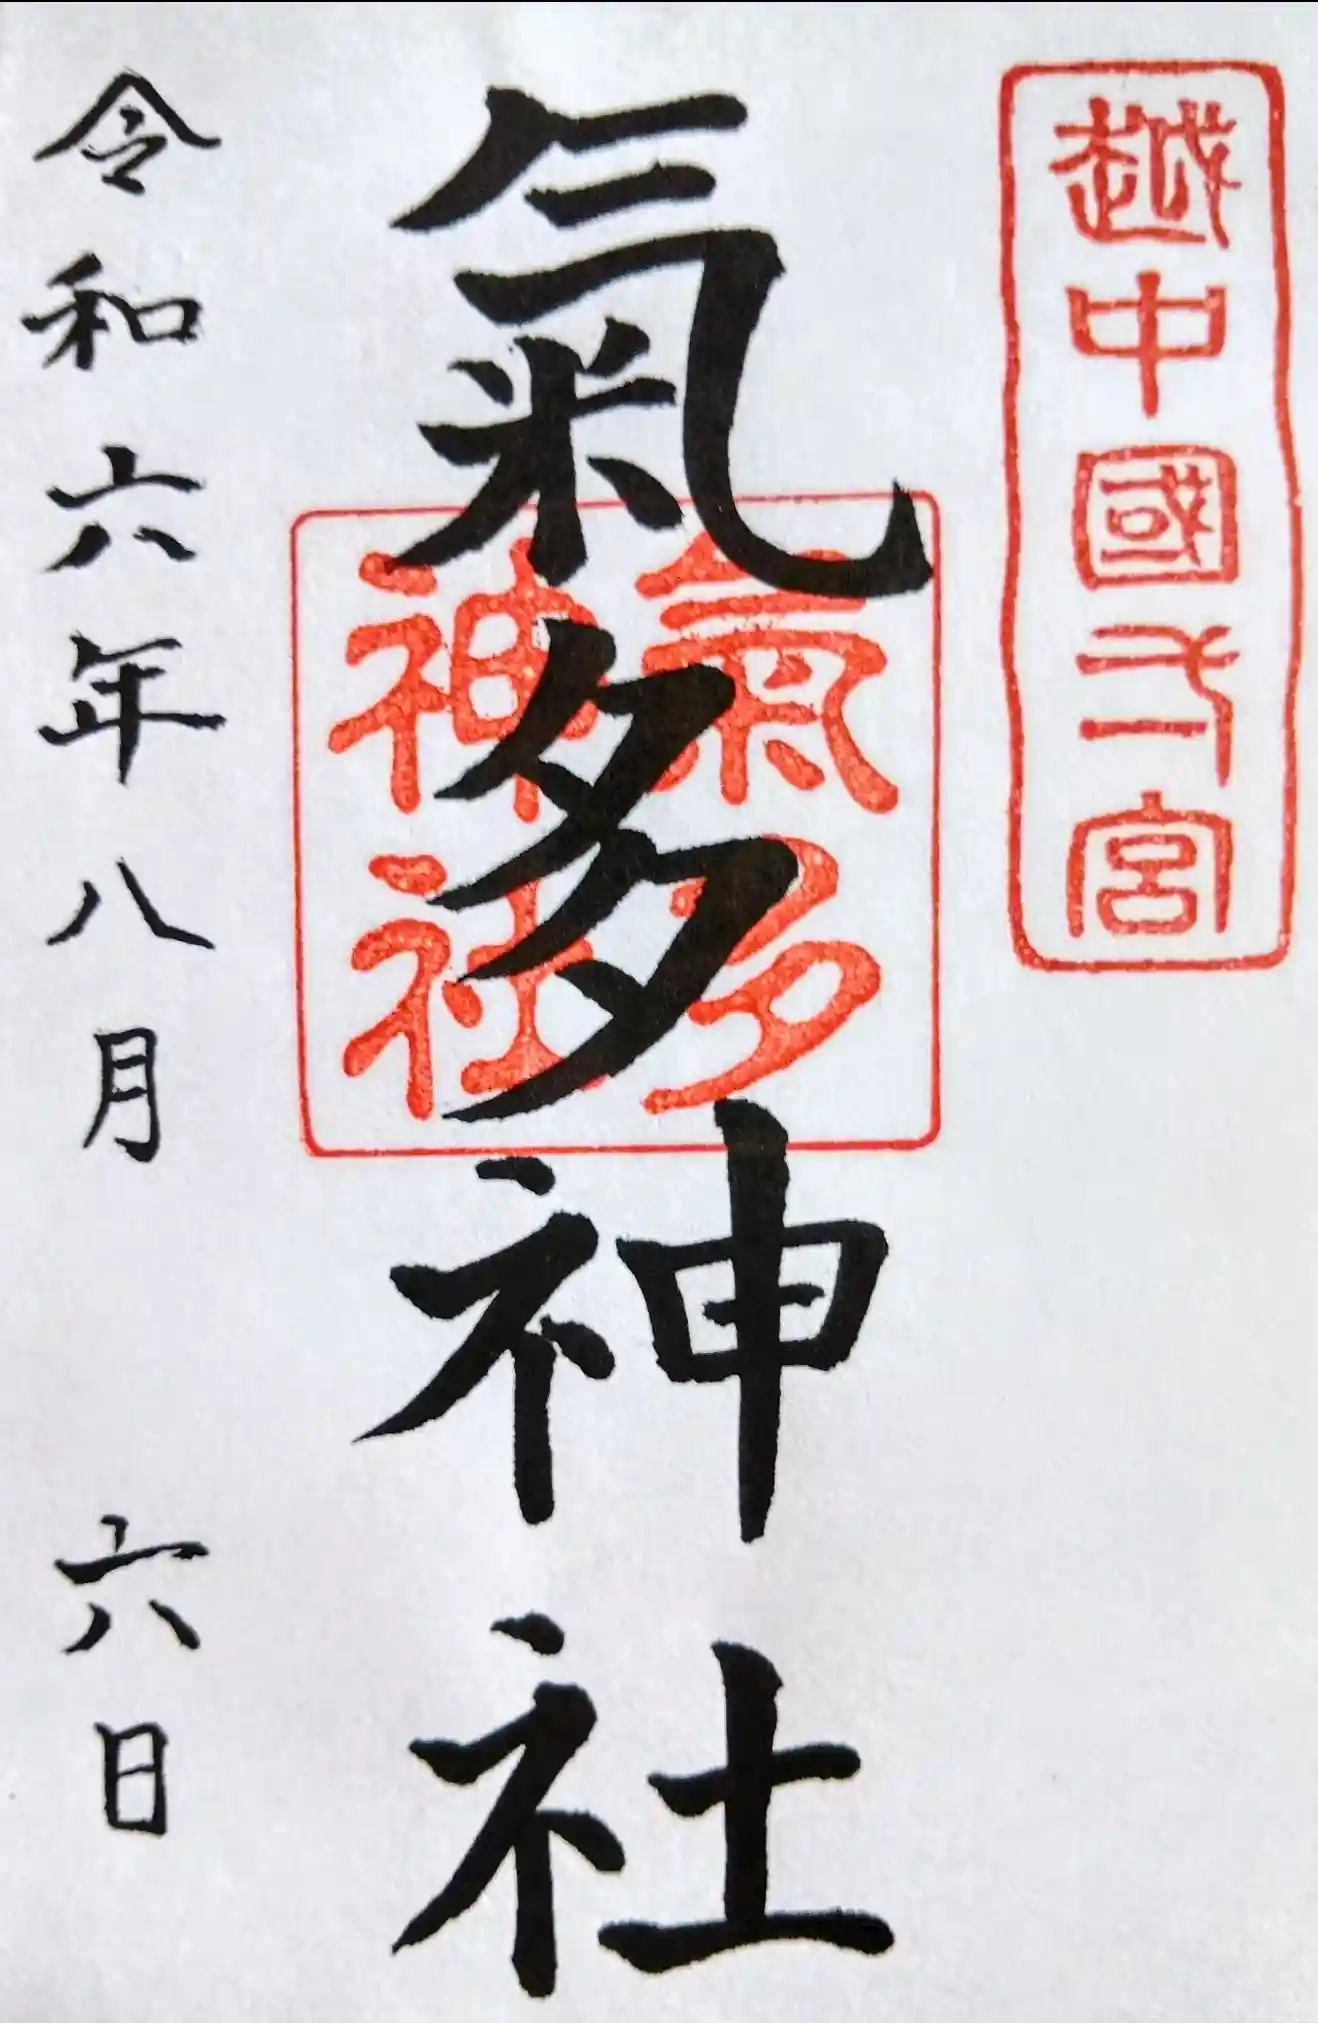 越中國弌一宮
氣多神社
氣多
神社
令和六年八月六日